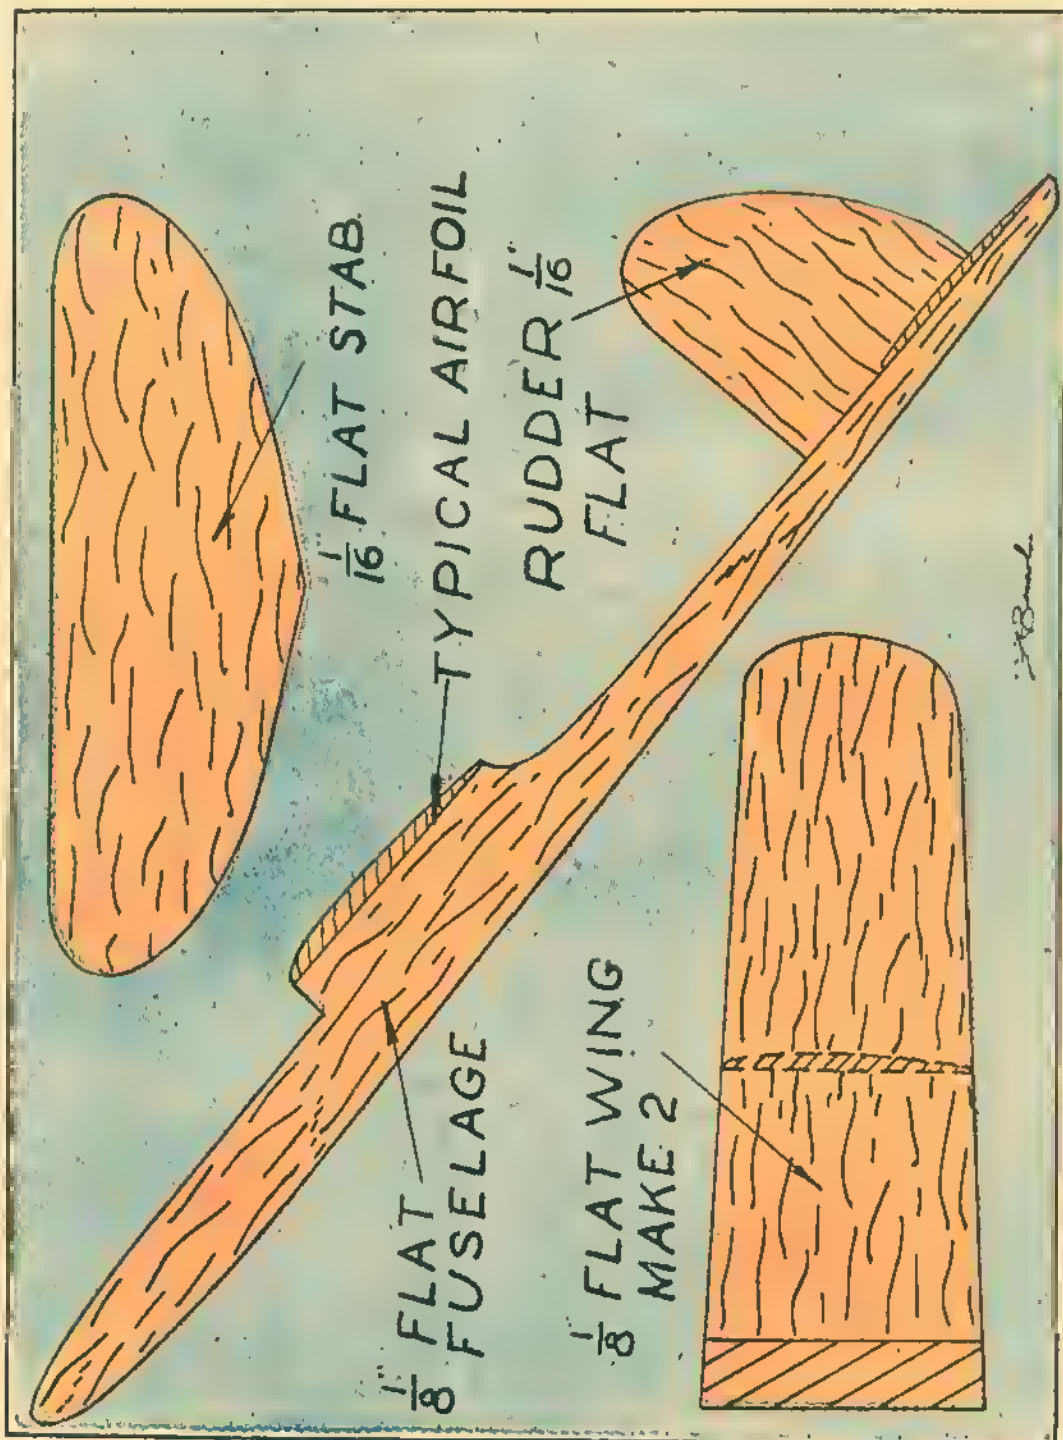 1/16" FLAT STAB.
TYPICAL AIRFOIL
RUDDER 1/16"
FLAT
1/8" FLAT
FUSELAGE
1/8" FLAT WING
MAKE 2